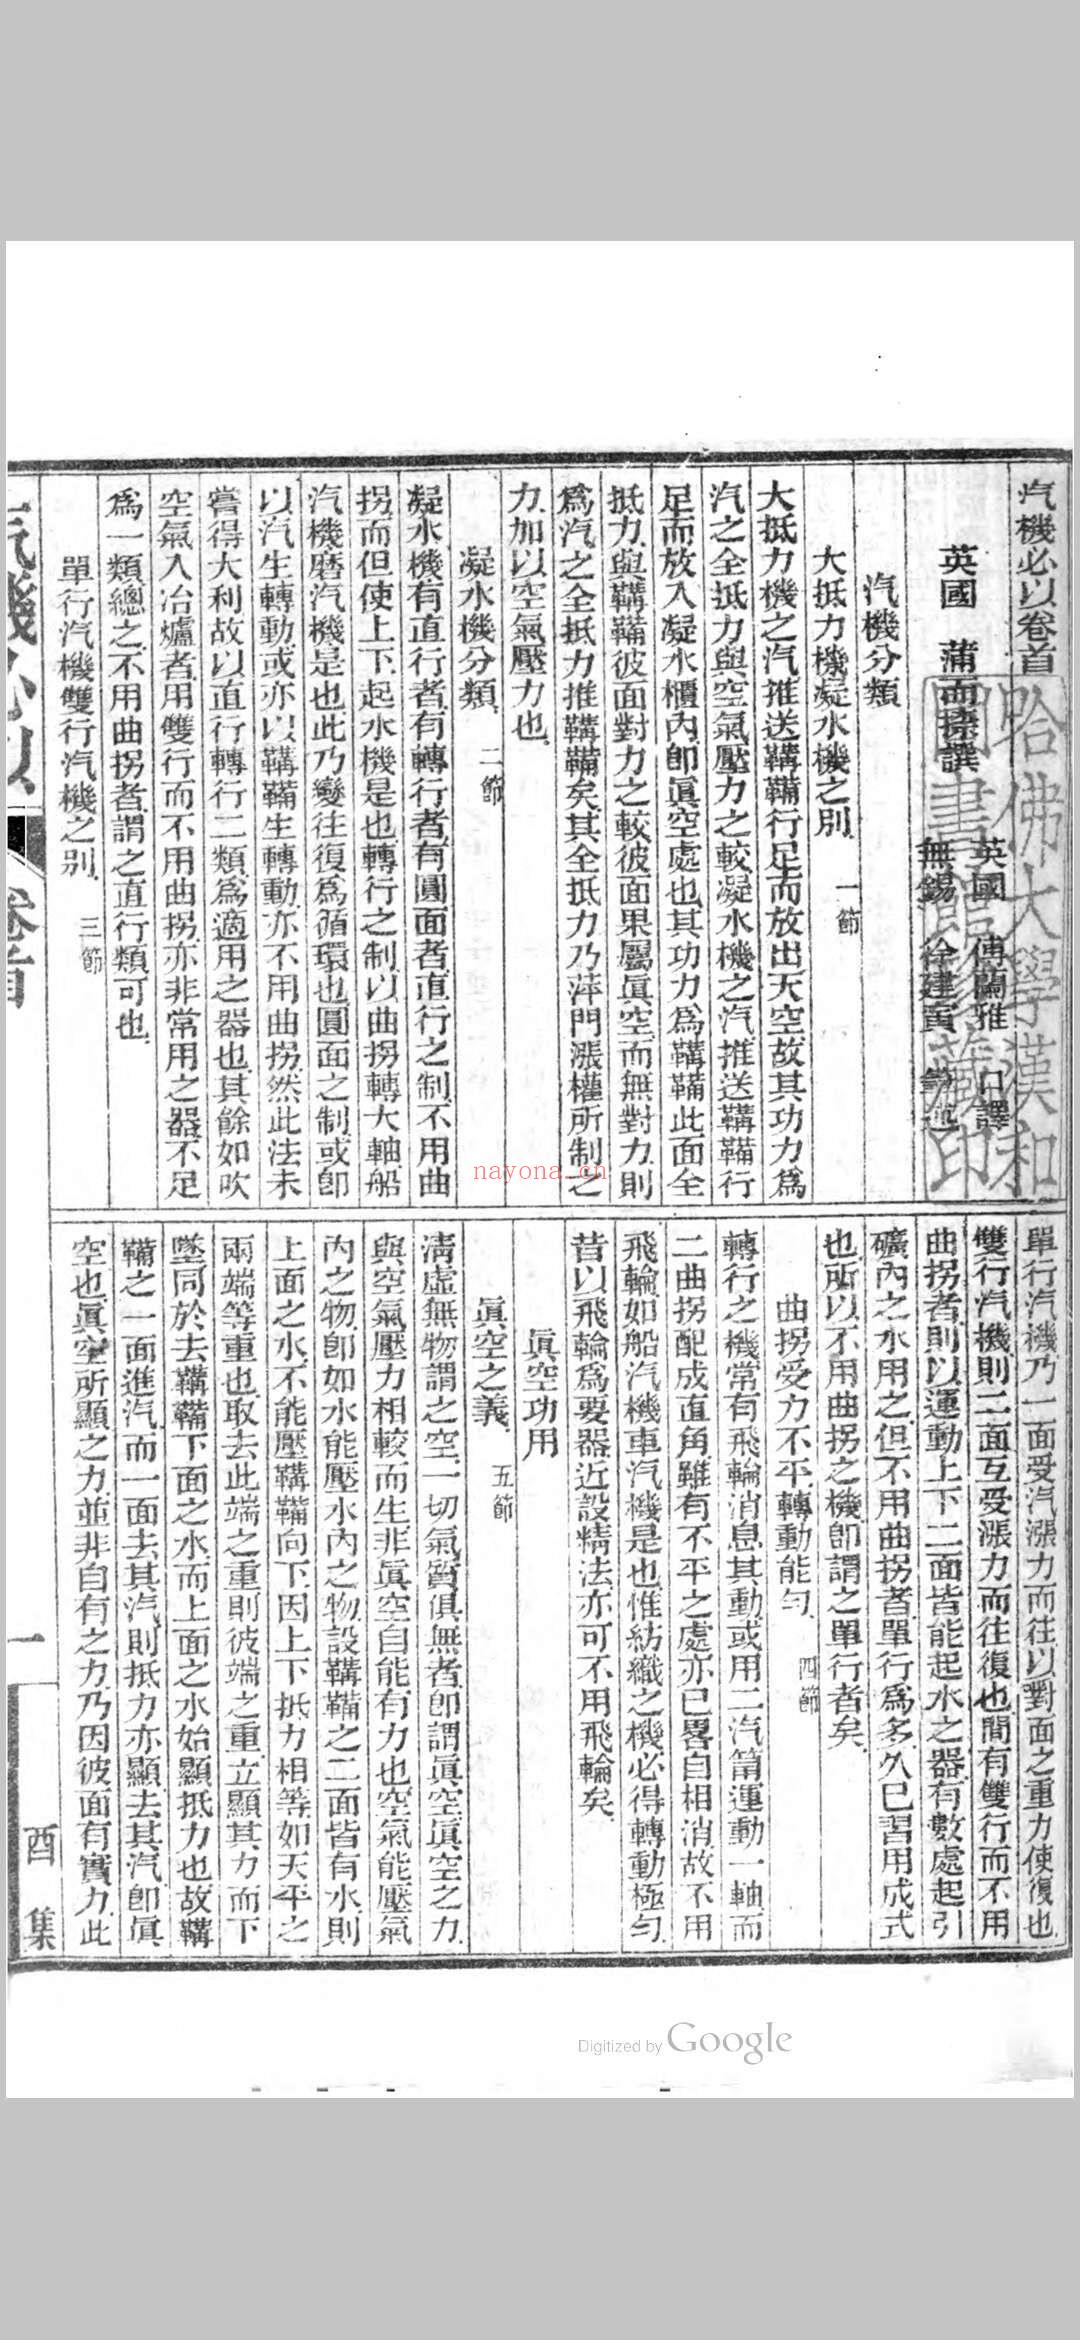 汽機必以卷首
英國 蒲而捺撰
英國 傅蘭雅 口譯
無錫 徐建寅 筆述
哈佛大學漢和
圖書館珍藏印
汽機分類
大抵力機凝水機之別 一節
大抵力機之汽推送鞲鞴行足而放出天空故其功力爲
汽之全抵力與空氣壓力之較凝水機之汽推送鞲鞴行
足而放入凝水櫃內卽眞空處也其功力爲鞲鞴此面全
抵力與鞲鞴彼面對力之較彼面果屬眞空而無對力則
爲汽之全抵力推鞲鞴矣其全抵力乃萍門漲權所制之
力加以空氣壓力也
凝水機分類 二節
凝水機有直行者有轉行者有圓面者直行之制不用曲
拐而但使上下起水機是也轉行之制以曲拐轉大軸船
汽機磨汽機是也此乃變往復爲循環也圓面之制或卽
以汽生轉動或亦以鞲鞴生轉動亦不用曲拐然此法未
嘗得大利故以直行轉行二類爲適用之器也其餘如吹
空氣入冶爐者用雙行而不用曲拐亦非常用之器不足
爲一類總之不用曲拐者謂之直行類可也
單行汽機雙行汽機之别 三節
單行汽機乃一面受汽漲力而往以對面之重力使復也
雙行汽機則二面互受漲力而往復也間有雙行而不用
曲拐者則以運動上下二面皆能起水之器有數處起引
礦內之水用之但不用曲拐者單行爲多久已習用成式
也所以不用曲拐之機卽謂之單行者矣
曲拐受力不平轉動能勻 四節
轉行之機常有飛輪消息其動或用二汽筩運動一軸而
二曲拐配成直角雖有不平之處亦已畧自相消故不用
飛輪如船汽機車汽機是也惟紡織之機必得轉動極勻
昔以飛輪爲要器近設精法亦可不用飛輪矣
眞空功用
眞空之義 五節
淸虛無物謂之空一切氣質俱無者卽謂眞空眞空之力
與空氣壓力相較而生非眞空自能有力也空氣能壓氣
內之物卽如水能壓水內之物設鞲鞴之二面皆有水則
上面之水不能壓鞲鞴向下因上下抵力相等如天平之
兩端等重也取去此端之重則彼端之重立顯其力而下
墜同於去鞲鞴下面之水而上面之水始顯抵力也故鞲
鞴之一面進汽而一面去其汽則抵力亦顯去其汽卽眞
空也眞空所顯之力並非自有之力乃因彼面有實力此
汽機必以
卷首
一
酉集
nayona.cn
Digitized by Google